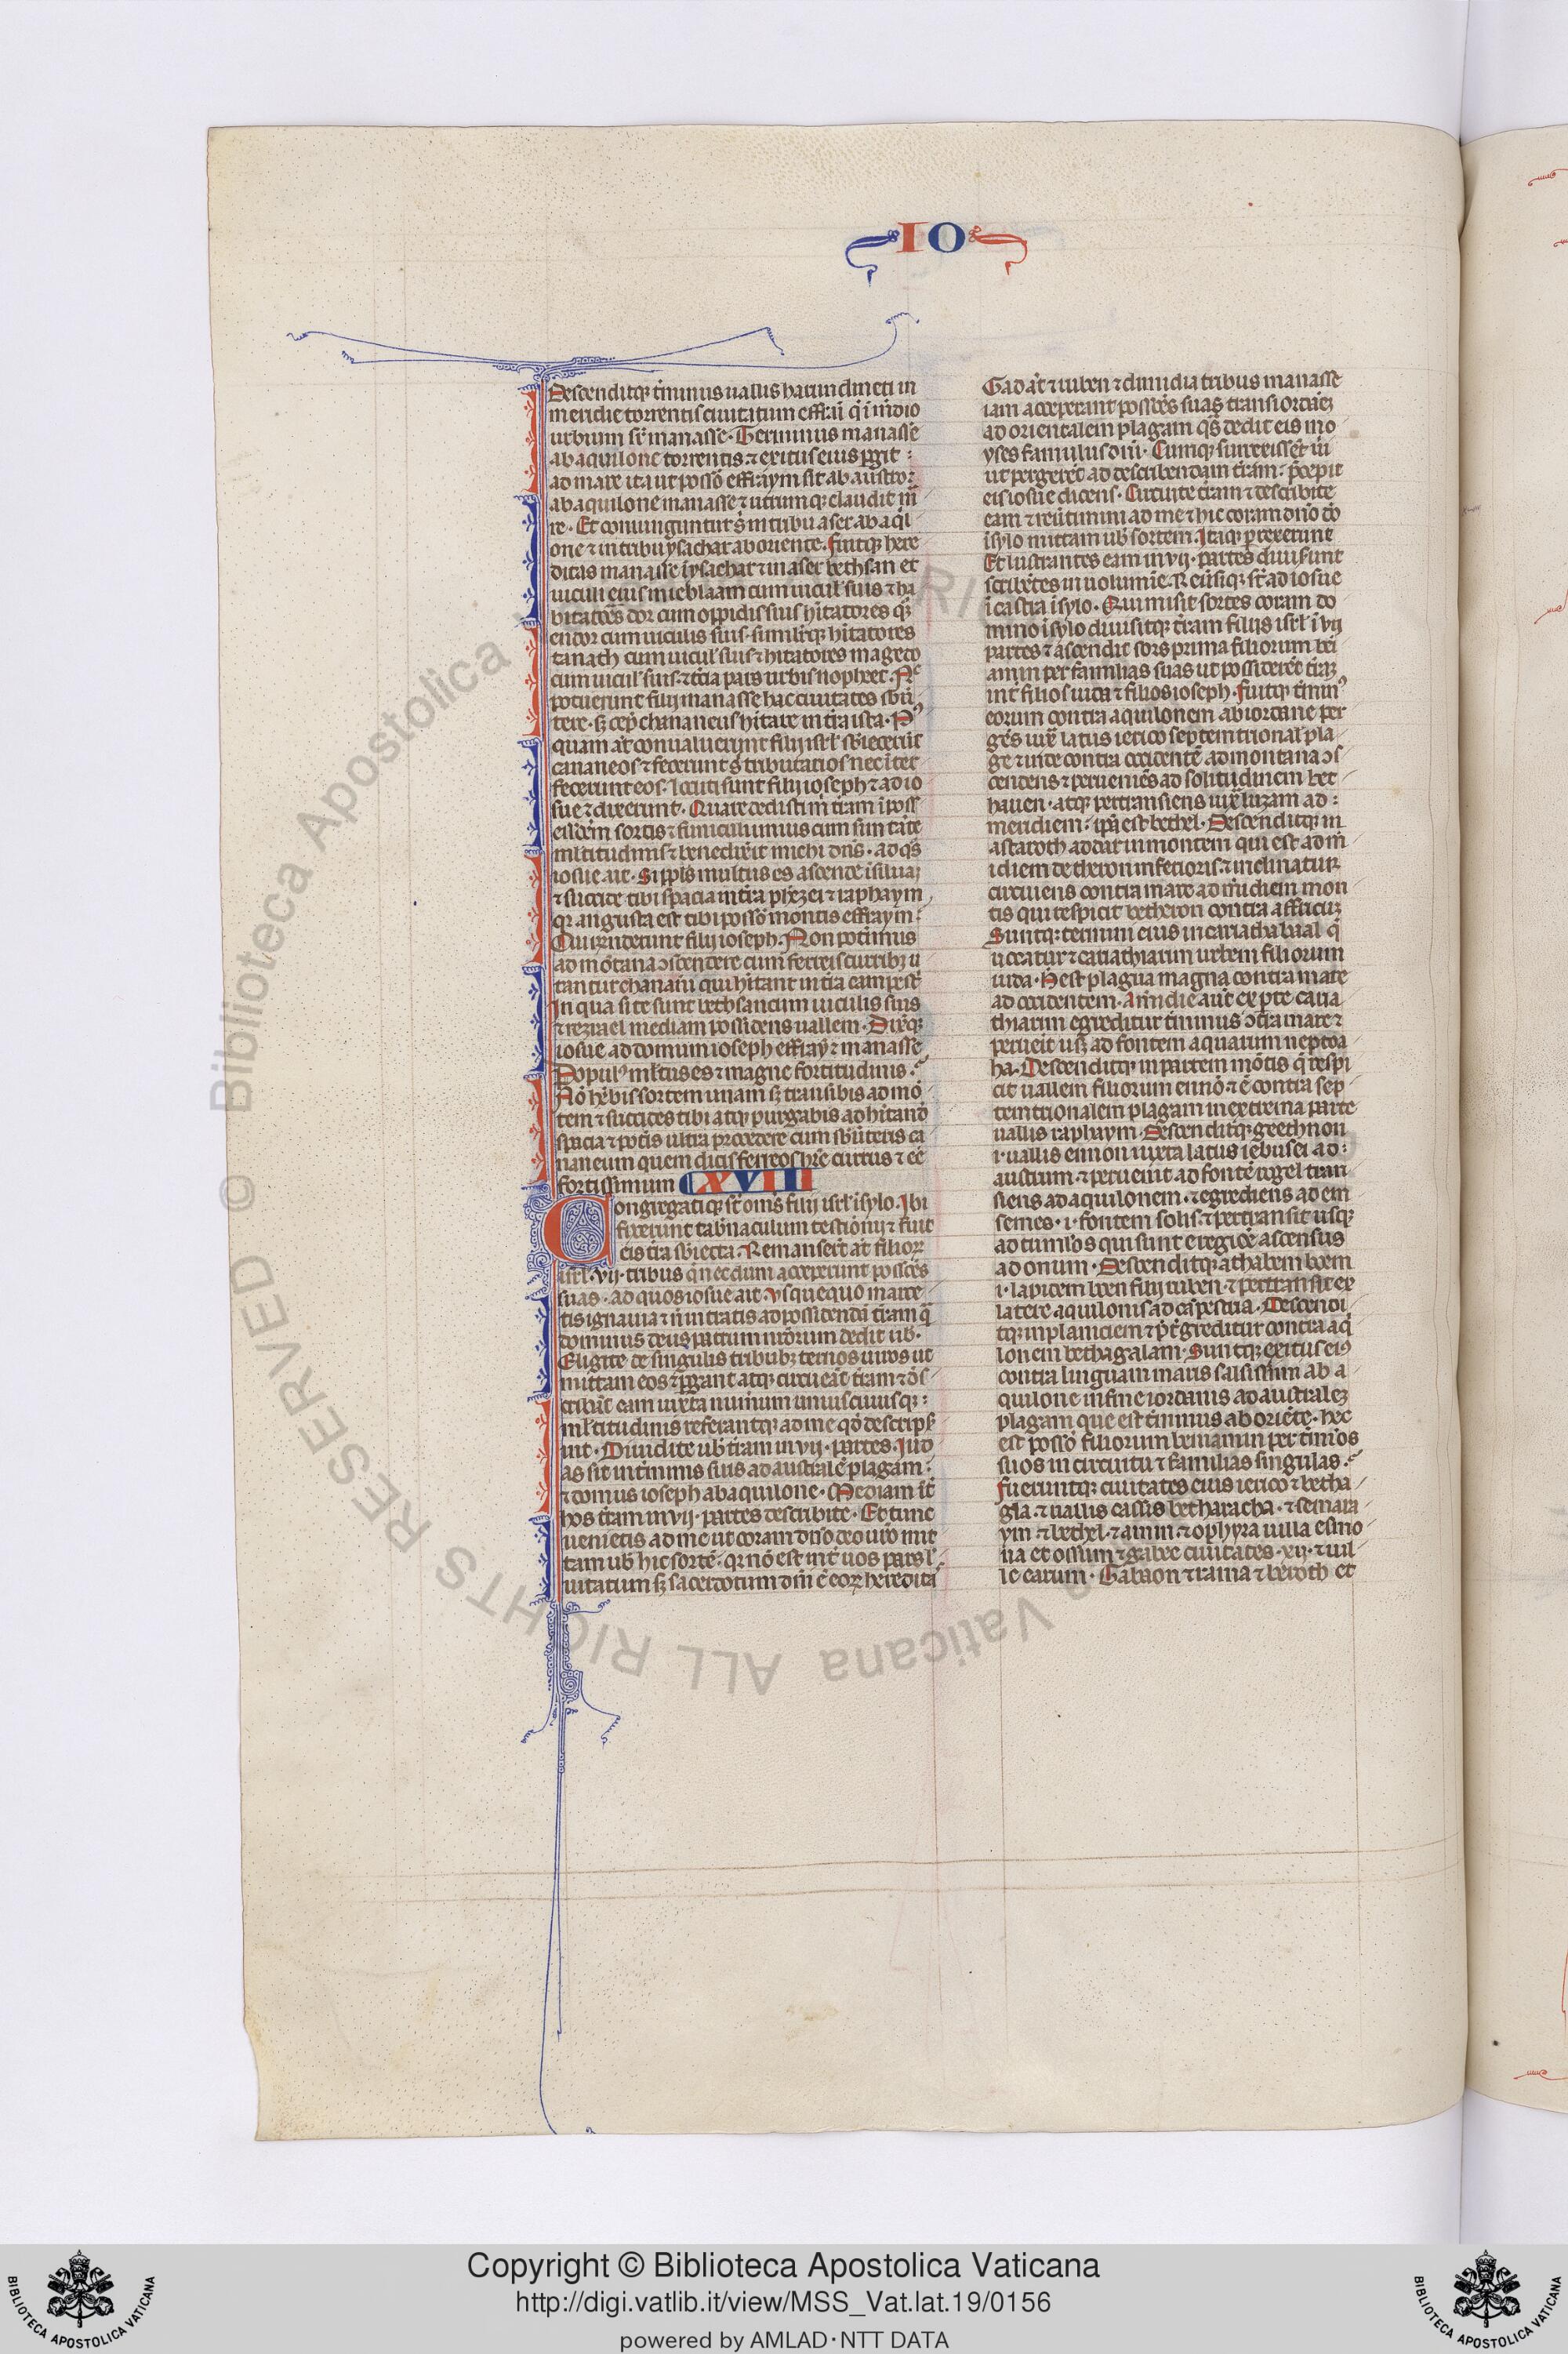 IO
Descenditq; t̃minus uallis harundineti in
meridie torrentis ciuitatum effraī q̄ ī mꝺio
urbium st̄ manasse. Terminus manasse
ab aquilone torrentis ⁊ exitus eius ꝑgit
ad mare ita ut possō effraym sit ab austro
ab aquilone manasse ⁊ utrumq; claudit m̄
re. Et coniunguntur s̄ in tribu aser ab aq̄l
one ⁊ in tribu ysachar ab oriente. fuitq; here
ditas manasse ī ysachar ⁊ in aser bethsan et
uiculi eius ⁊ ieblaam cum uicul' suis ⁊ ha
bitatores dor cum oppidis suis hītatores q;
endor cum uiculis suis. similit̃q; hītatores
tanach cum uicul' suis ⁊ hītatores mageto
cum uicul' suis. ⁊ t̃cia pars urbis nophet. Nc
potuerunt filij manasse has ciuitates sbū
tere. s; cepͥ chananeus hītare in t̃ra ista. P
quam aūt conualuerunt filij isrl' sbiecerūt
cananeos ⁊ fecerunt s̄ tributarios nec int̃
fecerunt eos. locuti sunt filij ioseph ⁊ ad io
sue ⁊ dixerunt. Quare dedisti m̄ t̃ram ī poss̄
eiꝺem sortis ⁊ funiculi unius cum sim tāte
ml'titudinis ⁊ benedix̄it michi dn̄s. ad q̄s
iosue ait. Si ppl's multus es ascende ī siluā
⁊ succide tibi spacia in t̃ra ph̄ezei ⁊ raphaym
q; angusta est tibi possō montis effraym.
Cui rn̄derunt filij ioseph. Non pot̃imus
ad mōtana ↄscendere cum ferreis curribꝫ u
tantur chananei qui hītant in t̃ra campestͥ
In qua site sunt bethsan cum uiculis suis
⁊ iezrael mediam possidens uallem. Dixͥq;
iosue ad domum ioseph effraȳ ⁊ manasse
Popul' ml'tus es ⁊ magne fortitudinis.
Nō h̄ebis sortem unam s; transibis ad mō
tem ⁊ succides tibi atq; purgabis ad hītand
spacia ⁊ pot̃is ultra procedere cum sbūteris ca
naneum quem dicis ferreos h̄re currus ⁊ eē
fortissimum XVIII
Congregatiq; st̄ om̄s filij isrl' ī sylo. Ibi
fixerunt tabn̄aculum testiōnij ⁊ fuit
eis t̃ra sbiecta. Remanserūt aūt filioꝝ
isrl' .vij. tribus q̄ necdum acceperunt poss̄ces
suas. ad quos iosue ait. Vsquequo marce
tis ignauia ⁊ n̄ intratis ad possidendā t̃ram q̄
dominus deus patrum nr̄orum dedit uƀ.
Eligite de singulis tribubꝫ ternos uiros ut
mittam eos ⁊ ꝑgant atq; circueāt t̃ram ⁊ ds
cribāt eam iuxta numum uniuscuiusq;
ml'titudinis referantq; ad me qd descripse
int. Diuidite uƀ t̃ram in vij. partes. iud
as sit in t̃minis suis ad australē plagam.
⁊ domus ioseph ab aquilone. Mediam int̃
hos t̃ram in vij. partes describite. Et tunc
uenietis ad me ut coram dn̄o deo ur̄o mit
tam uƀ hic sortē. q; nō est int̃ uos pars l'
uitarum s; sacerdotum dn̄i ē eoꝝ heredita
Gad aūt ⁊ ruben ⁊ dimidia tribus manasse
iam acceperunt poss̄ces suas transiordaē
ad orientalem plagam q̄s dedit eis mo
yses famulus dn̄i. Cumq; surrexissēt uͥi
ut pergerēt ad describendam t̃ram. p̄cepit
eis iosue dicens. Circuite t̃ram ⁊ describite
eam ⁊ reūtimini ad me ⁊ hic coram dn̄o dō
ī sylo mittam uƀ sortem. Itaq; prexerunt
Et lustrantes eam in vij. partes diuiserunt
scribētes in uolumīe. Reūsiq; st̄ ad iosue
ī castra ī sylo. Qui misit sortes coram do
mino ī sylo diuisitq; t̃ram filijs isrl' ī vij
partes ⁊ ascendit sors prima filiorum bē
amin per familias suas ut possiderēt t̃ram
int̃ filios iuda ⁊ filios ioseph. fuitq; t̃min
eorum contra aquilonem ab iordane per
gēs iux̄ latus ierico septemtrional' pla
ge ⁊ inde contra occidentē ad montana ↄs
cendens ⁊ perueniēs ad solitudinem bet
hauen. atq; pertransiens iux̄ luzam ad
meridiem. ip̄a est bethel. Descenditq; in
astaroth addar in montem qui est ad m̄
idiem betheron inferioris. ⁊ inclinatur
circuiens contra mare ad mͥdiem mon
tis qui respicit betheron contra affricuꝫ
Suntq; termini eius in cariathabaal q̄
uocatur ⁊ cariathiarim urbem filiorum
iuda. h̄ est plagua magna contra mare
ad occidentem. A mͥdie aūt ex ꝑte caria
thiarim egreditur t̃minus ↄtra mare ⁊
peruēit usq; ad fontem aquarum neptoa
ha. Descenditq; in partem mōtis q̄ respi
cit uallem filiorum ennō ⁊ ē contra sep
temtrionalem plagam in extrema parte
uallis raphaym. Descenditq; geethnon
.i. uallis ennon iuxta latus iebusei ad
austrum ⁊ peruenit ad fontē rogel tran
siens ad aquilonem. ⁊ egrediens ad en
semes. i. fontem solis. ⁊ pertransit usq;
ad tumlos qui sunt e regioē ascensus
adonum. Descenditq; athabem boem
.i. lapidem boen filij ruben. ⁊ pertransit ex
latere aquilonis ad cāpestria. Descendi
tq; in planiciem ⁊ p̄t̃greditur contra aq̄
lonem bethagalam. Suntq; exitus eiꝰ
contra linguam maris salsissimi ab a
quilone in fine iordanis ad australeꝫ
plagam que est t̃minus ab oriēte. hec
est possō filiorum beniamin per t̃mīos
suos in circuitu ⁊ familias singulas.
fueruntq; ciuitates eius ierico ⁊ betha
gla. ⁊ uallis casis betharacha. ⁊ semara
ym. ⁊ bethel. ⁊ auim. ⁊ ophyra uilla esmo
na et offim ⁊ gabee ciuitates. xij. ⁊ uil
le earum. Gabaon ⁊ rama ⁊ beroth et
© Biblioteca Apostolica Vaticana ALL RIGHTS RESERVED
Copyright © Biblioteca Apostolica Vaticana
http://digi.vatlib.it/view/MSS_Vat.lat.19/0156
powered by AMLAD·NTT DATA
BIBLIOTECA APOSTOLICA VATICANA
BIBLIOTECA APOSTOLICA VATICANA